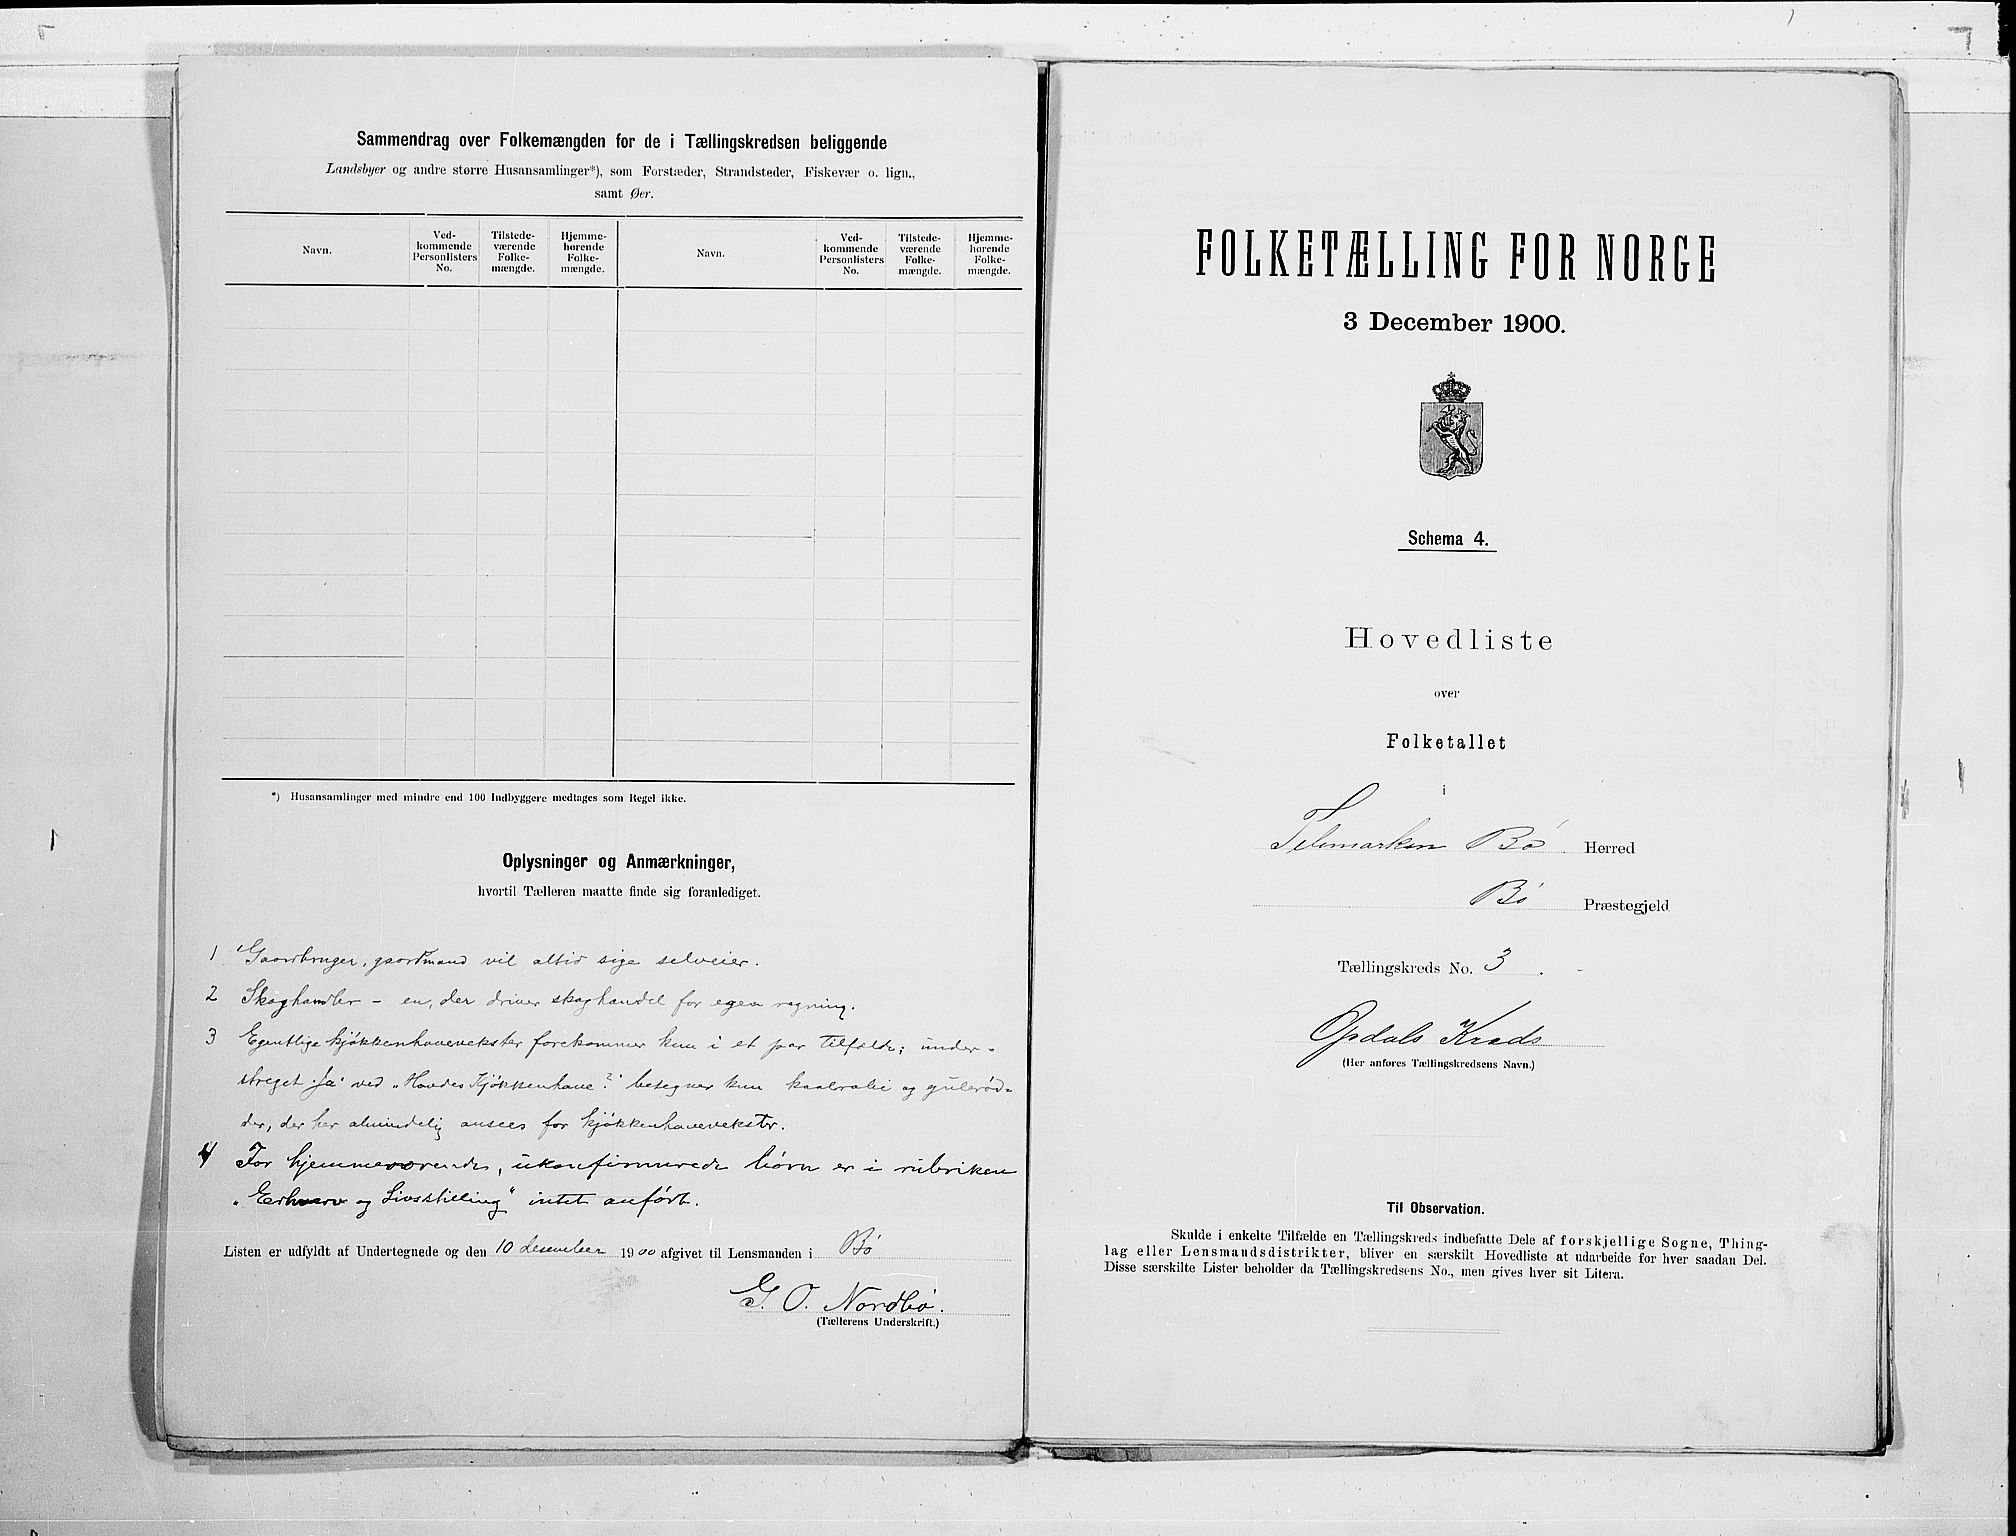 Sammendrag over Folkemængden for de i Tællingskredsen beliggende
Landsbyer og andre større Husansamlinger*), som Forstæder, Strandsteder, Fiskevær o. lign.,
samt Øer.
Navn.
Ved-
kommende
Personlisters
No.
Tilstede-
værende
Folke-
mængde.
Hjemme-
hørende
Folke-
mængde.
Navn.
Ved-
kommende
Personlisters
No.
Tilstede-
værende
Folke-
mængde.
Hjemme-
hørende
Folke-
mængde.
*) Husansamlinger med mindre end 100 Indbyggere medtages som Regel ikke.
Oplysninger og Anmærkninger,
hvortil Tælleren maatte finde sig foranlediget.
1 Gaardbruger, gaardmand vil altid sige selveier.
2 Skoghandler – en, der driver skoghandel for egen regning.
3 Egentlige kjøkkenhavevekster forekommer kun i et par tilfælde; under-
streget Ja ved „Havdes Kjøkkenhave?" betegner kun kaalrabi og gulerød-
der, der her almindelig ansees for kjøkkenhavevekster.
4 For hjemmeværende, ukonfirmerede børn er i rubriken
„Erhverv og Livsstilling" intet anført.
Listen er udfyldt af Undertegnede og den 10 desember 1900 afgivet til Lensmanden i Bø
G. O. Nordbø.
(Tællerens Underskrift.)
FOLKETÆLLING FOR NORGE
3 December 1900.
Schema 4.
Hovedliste
over
Folketallet
i
Telemarken Bø Herred
Bø Præstegjeld
Tællingskreds No. 3.
Opdals Kreds
(Her anføres Tællingskredsens Navn.)
Til Observation.
Skulde i enkelte Tilfælde en Tællingskreds indbefatte Dele af forskjellige Sogne, Thing-
lag eller Lensmandsdistrikter, bliver en særskilt Hovedliste at udarbeide for hver saadan Del.
Disse særskilte Lister beholder da Tællingskredsens No., men gives hver sit Litera.